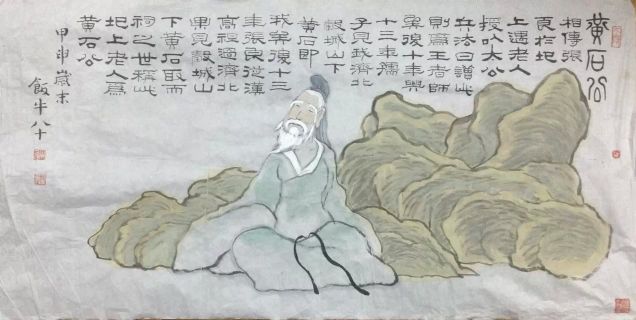 黄石公
相傳張
良於圯
上遇老人
授以太公
兵法曰讀此
則爲王者師
矣後十年興
十三年孺
子見我濟北
穀城山下
黄石即
我矣後十三
年張良從漢
高經過濟北
果見穀城山
下黄石取而
祠之世稱此
圯上老人爲
黄石公
甲申歲末
飯牛八十